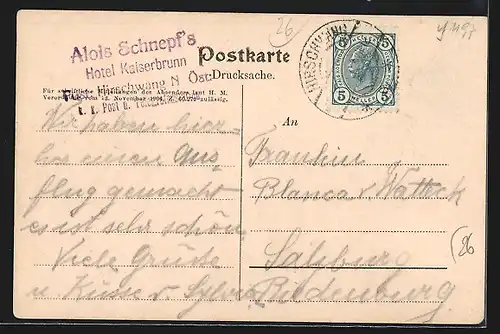 26
y 1197
Alois Schnepf's
Hotel Kaiserbrunn
Hirschwang N. Öst.
k. k. Post u.
Postkarte
Drucksache.
Für schriftliche Mitteilungen des Absenders laut H. M.
Verordnung vom 13. November 1904, Z. zulässig.
HIRSCHWANG
5 5
HELLER
An
Wir haben hier-
her einen Aus-
flug gemacht
es ist sehr schön.
Viele Grüße
u Küsse v
Fräulein
Blanca v. Watteck
Salzburg
Riedenburg
26